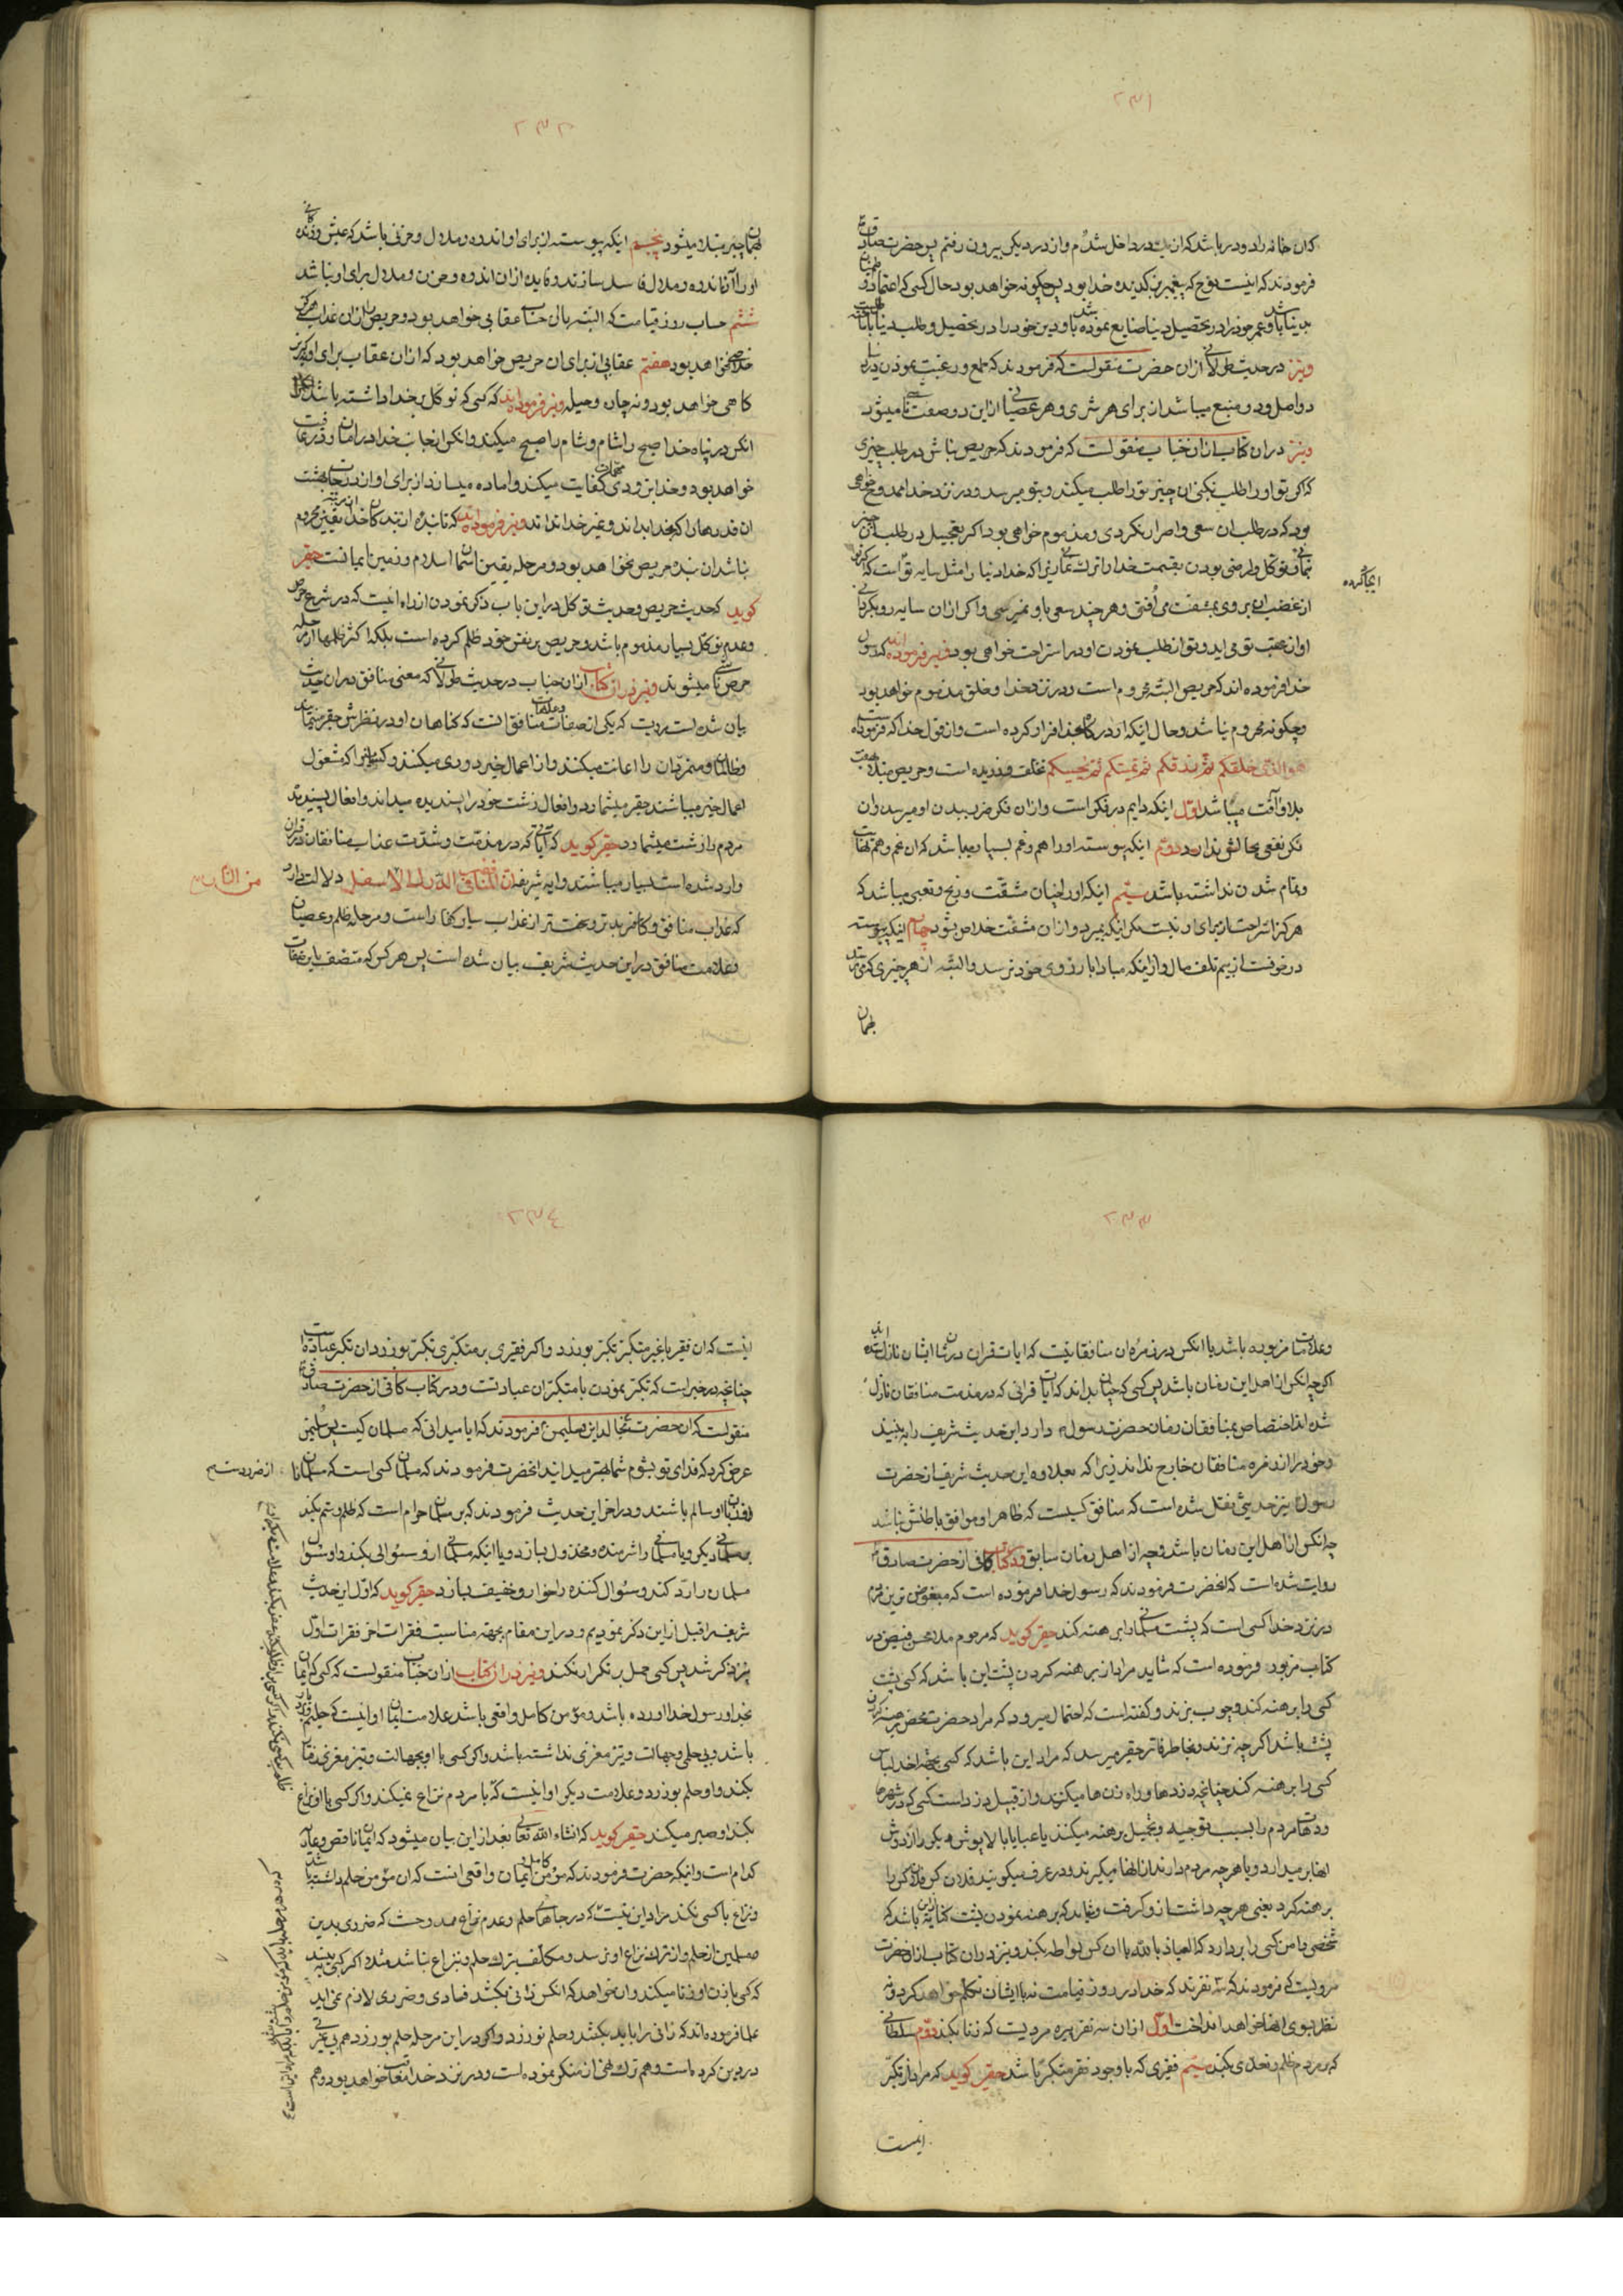 ۲۳۱
که ان خانه را دو در باشد که از یک در داخل شدم و از در دیگری بیرون رفتم پس حضرت صادق ع
فرمودند که اینست نوح که پیغمبر برگزیده خدا بود پس چگونه خواهد بود حال کسی که اعتماد او
بدنیا باشد و عمر خود را در تحصیل دنیا ضایع نموده باشد و دین خود را در تحصیل و طلب دنیا
ونیز در حدیث طولانی از ان حضرت منقولست که فرمودند که طمع و رغبت نمودن بدنیا
دو اصل و دو منبع میباشد از برای هر شری و هر عصیانی از این دو صفت ناشی میشود
ونیز در ان کتاب از ان جناب منقولست که فرمودند که حریص مباش در طلب چیزی
که اگر تو او را طلب نکنی ان چیز تو را طلب میکند و بتو میرسد و در نزد خدا ممدوح خواهی
بود که در طلب ان سعی و اصرار نکردی و مذموم خواهی بود اگر تعجیل در طلب ان چیز
نمائی و توکل و راضی بودن بقسمت خدا را ترک نمائی زیرا که خدا دنیا را مثل سایه تو است که اگر
ایجاد کرده
از عقب ان بروی بمشقت می افتی و هر چند سعی باو نمیرسی و اگر از ان سایه رو بگردانی
او از عقب تو می اید و تو از طلب نمودن او در استراحت خواهی بود ونیز فرموده اند که رسول
خدا فرموده اند که حریص البته محروم است و در نزد خدا و خلق مذموم خواهد بود
و چگونه محروم نباشد و حال اینکه او در کار خدا فرار کرده است و از قول خدا که فرموده است
هو الذی خلقکم ثم رزقکم ثم یمیتکم ثم یحییکم تخلف ورزیده است و حریص مبتلا بهفت
بلا و آفت میباشد اول اینکه دایم در فکر است و از ان فکر ضرر ببدن او میرسد و ان
فکر نفعی بحالش ندارد دوم اینکه پیوسته او را هم و غم بسیار میباشد که ان غم و هم نهایت
و تمام شدن نداشته باشد سیم اینکه او را چنان مشقت و رنج و تعبی میباشد که
هرگز استراحت از برای او نیست مگر اینکه بمیرد و از ان مشقت خلاص شود چهارم اینکه پیوسته
در خوفست از بیم تلف مال و از اینکه مبادا بارزوی خود نرسد و البته از هر چیزی که میترسد
بهمان
۲۳۲
بهمان چیز مبتلا میشود پنجم اینکه پیوسته از برای او اندوه و ملال و حزنی باشد که عیش و زندگانی
او را آن اندوه و ملال فاسد سازند و فایده از ان اندوه و حزن و ملال برای او نباشد
ششم حساب روز قیامت که البته بان حساب عقابی خواهد بود و حریص را از ان عذاب هرگز
خلاصی نخواهد بود هفتم عقابی از برای ان حریص خواهد بود که از ان عقاب برای او گریز
کاهی خواهد بود و نه چاره و حیله ونیز فرموده اند که کسی که توکل بر خدا داشته باشد
انکس در پناه خدا صبح را شام و شام را صبح میکند و انکس از جانب خدا در امان و در عافیت
خواهد بود و خدا بزودی مهمات او را کفایت میکند و اماده میسازد از برای او از درجات بهشت
ان قدرها را که خدا بداند و غیر خدا نداند ونیز فرموده اند که تا بنده از بندگان خدا از مرتبه یقین محروم
نباشد ان بنده حریص نخواهد بود و مرحله یقین اسمان اسلام و زمین ایمانست حقیر
گوید که حدیث حریص و حدیث توکل در این باب ذکر نمودن از راه اینست که در شرع حرص
و عدم توکل بسیار مذموم باشد و حریص بر نفس خود ظلم کرده است بلکه اکثر ظلمها از مرحله
حرص ناشی میشوند ونیز در ان کتاب از ان جناب در حدیث طولانی که معنی منافق در ان حدیث
بیان شده است مرویست که یکی از صفات و علامات منافق انست که گناهان او در نظرش حقیر مینماید
و ظالمان و متمردان را اعانت میکند و از اعمال خیر دوری میکند و کسانیرا که مشغول
اعمال خیر میباشند حقیر میشمارد و افعال زشت خود را پسندیده میداند و افعال پسندیده
مردم را زشت میشمارد حقیر گوید که آیاتی که در مذمت و شدت عذاب منافقان در قران
وارد شده است بسیار میباشند و ایه شریفه ان المنافقین فی الدرک الاسفل دلالت دارد
من النار
که عذاب منافق و کافر بدتر و سخت تر از عذاب سایر کفار است و مرحله ظلم و عصیان
و علامت منافق در این حدیث شریف بیان شده است پس هر کس که متصف باین صفات
۲۳۳
و علامات مزبوره باشد یا انکس در زمره ان منافقانیست که ایات قران در شان ایشان نازل شده اند
اگر چه انکس از اهل این زمان باشد پس کسی که چنان بداند که ایات قرانی که در مذمت منافقان نازل
شده اند اختصاص بمنافقان زمان حضرت رسول دارد این حدیث شریف را به بیند
و خود را از زمره منافقان خارج نداند زیرا که بعلاوه این حدیث شریف از حضرت
رسول نیز حدیثی نقل شده است که منافق کسیست که ظاهر او موافق باطنش نباشد
چه انکس از اهل این زمان باشد و چه از اهل زمان سابق و در کتاب کافی از حضرت صادق
روایت شده است که انحضرت فرمودند که رسول خدا فرموده است که مبغوض ترین مردم
در نزد خدا کسی است که پشت مسلمانی را برهنه کند حقیر گوید که مرحوم ملا محسن فیض در
کتاب مزبور فرموده است که شاید مراد از برهنه کردن پشت این باشد که کسی پشت
کسی را برهنه کند و چوب بزند و گفته است که احتمال میرود که مراد حضرت محض برهنه کردن
پشت باشد اگر چه نزند و بخاطر فاتر حقیر میرسد که مراد این باشد که کسی بجهة اخذ لباس
کسی را برهنه کند چنانچه دزدها و راه زن ها میکنند و از قبیل دزد است کسی که در شهرها
و دهات مردم را بسبب توجیه و تحمیل برهنه میکند یا عبا یا بالاپوش دیگر را از دوش
انها بر میدارد و یا هر چه مردم دارند از انها میگیرند و در عرف میگویند فلان کس فلان کس را
برهنه کرد یعنی هر چه داشت از و گرفت و شاید که برهنه نمودن پشت کنایه از این باشد که
شخصی دامن کسی را بردارد که العیاذ بالله با ان کس لواطه بکند ونیز در ان کتاب از انحضرت
مرویست که فرمودند که سه نفرند که خدا در روز قیامت نه با ایشان تکلم خواهد کرد و نه
نظر بسوی انها خواهد انداخت اول از ان سه نفر پیره مردیست که زنا بکند دوم سلطانی
که بر مردم ظلم و تعدی بکند سیم فقیری که با وجود فقر متکبر باشد حقیر گوید که مراد از تکبر
اینست
۲۳۴
اینست که ان فقیر با غیر متکبر تکبر بورزد و اگر فقیری بر متکبری تکبر بورزد ان تکبر عبادتست
چنانچه در خبر است که تکبر نمودن با متکبران عبادتست و در کتاب کافی از حضرت صادق ع
منقولست که ان حضرت بخالد ابن سلیمن فرمودند که ایا میدانی که مسلمان کیست پس سلیمن
عرض کرد که فدای تو بشوم شما بهتر میدانید انحضرت فرمودند که مسلمان کسی است که مسلمانان
از ضرر دست
و زبان او سالم باشند و در اخر این حدیث فرمودند که بر مسلمان حرام است که ظلم و ستم بکند
بر مسلمانی دیگر و یا مسلمانی را شرمنده و مخذول سازد و یا اینکه مسلمانی از و سئوالی بکند و او سئوال
مسلمان را رد کند و سئوال کننده را خوار و خفیف سازد حقیر گوید که اول این حدیث
شریف را قبل از این ذکر نمودیم و در این مقام بجهة مناسبت فقرات اخر فقرات اول
نیز ذکر شد پس کسی حمل بر تکرار نکند ونیز در ان کتاب از ان جناب منقولست که کسی که ایمان
بخدا و رسول خدا اورده باشد و مؤمن کامل و واقعی باشد علامت ایمان او اینست که حلیم و بردبار
باشد و بی حلمی و جهالت و تیز مغزی نداشته باشد و اگر کسی با او بجهالت و تیز مغزی رفتار
بکند او حلم بورزد و علامت دیگر او اینست که با مردم نزاع نمیکند و اگر کسی با او نزاع
بکند او صبر میکند حقیر گوید که انشاء الله تعالی بعد از این بیان میشود که ایمان ناقص و عاریه
کدام است و اینکه حضرت فرمودند که مؤمن کامل و ایمان واقعی انست که ان مؤمن حلم داشته باشد
و نزاع با کسی نکند مراد این نیست که در جاهائی حلم و عدم نزاع ممدوحست که ضرری بدین
مسلمین از حلم و از ترک نزاع او نرسد و مکلف بترک حلم و نزاع نباشد مثلا اگر کسی به بیند
که کسی با زن او زنا میکند و او نخواهد که انکس زانی بکشد فسادی و ضرری لازم نمی اید
علما فرموده اند که زانی را باید بکشد و حلم نورزد و اگر در این مرحله حلم بورزد هم بی غیرتی
در دین کرده است و هم ترک نهی از منکر نموده است و در نزد خدا معاقب خواهد بود و هم